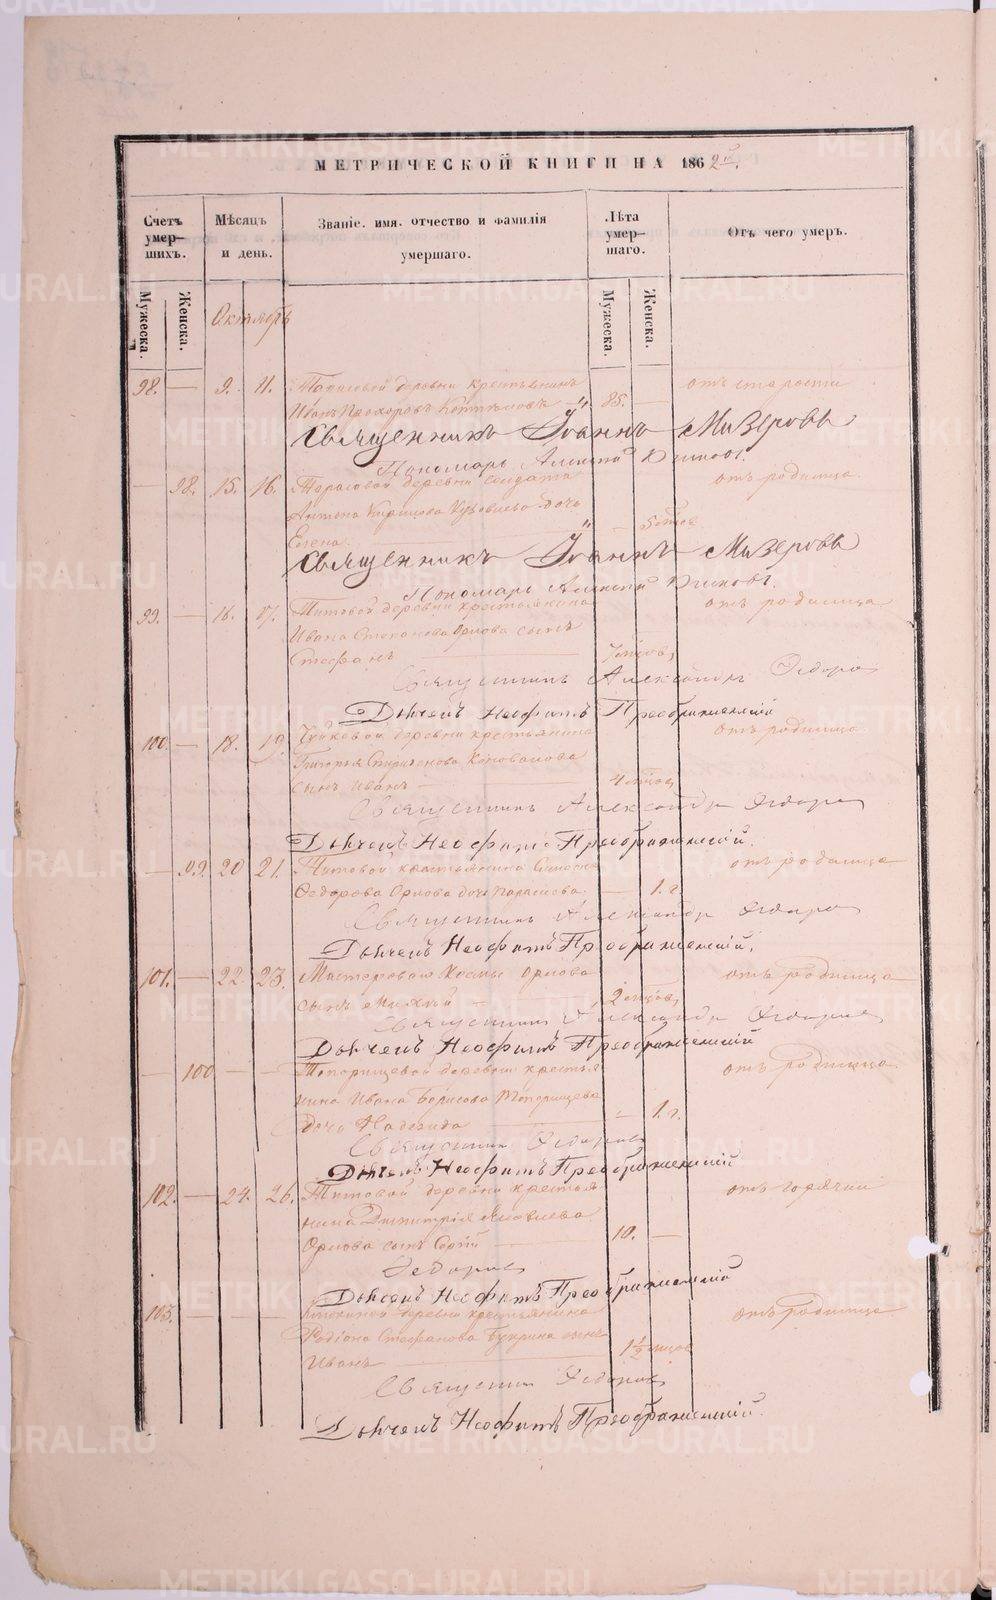 МЕТРИЧЕСКОЙ КНИГИ НА 1862й.
Счетъ умер-шихъ.
Мѣсяцъ и день.
Званіе, имя, отчество и фамилія умершаго.
Лѣта умер-шаго.
Отъ чего умеръ.
Мужеска.
Женска.
Мужеска.
Женска.
Октябрь
98. — 9. 11. деревни крестьянинъ отъ старости
Иванъ Прохоровъ 85. —
Священникъ Іоаннъ Мизеровъ
Пономарь Алексѣй
— 98. 15. 16. деревни солдата отъ родимца.
Антона дочь
Елена — 5 мѣсцов
Священникъ Іоаннъ Мизеровъ
Пономарь Алексѣй
99. — 16. 17. Титовой деревни крестьянина отъ родимца
Ивана Степанова Орлова сынъ
Стефанъ 7 мѣсцов
Священникъ Александръ Федоров
Дьячекъ Неофитъ Преображенскій
100. — 18. 19. деревни крестьянина отъ родимца.
Григорья Коновалова
сынъ Иванъ 4 мѣсцов
Священникъ Александръ Федоров
Дьячекъ Неофитъ Преображенскій.
— 99. 20 21. Титовой крестьянина отъ родимца
Федорова Орлова дочь — 1. г
Священникъ Александръ Федоров
Дьячекъ Неофитъ Преображенскій.
101. — 22. 23. Мастероваго Космы Орлова отъ родимца
сынъ 2 мѣсцов
Священникъ Александръ Федоров
Дьячекъ Неофитъ Преображенскій
— 100 — — Топорищевой деревни крестья- отъ родимца.
нина Ивана Борисова Топорищева
дочь Надежида — 1. г.
Священникъ Федоров
Дьячекъ Неофитъ Преображенскій
102. — 24. 26. Титовой деревни крестья- отъ горячки
нина Димитрія Яковлева
Орлова сынъ Сергій 10. —
Федоров
Дьячекъ Неофитъ Преображенскій
103. — — — деревни крестьянина отъ родимца
Родіона Стефанова сынъ
Иванъ 1½ мѣсцов
Священник Федоров
Дьячекъ Неофитъ Преображенскій.
METRIKI.GASO-URAL.RU